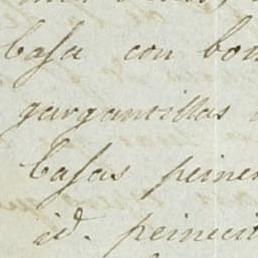 basa con bo
gargantillas
basas peine
id. peineci